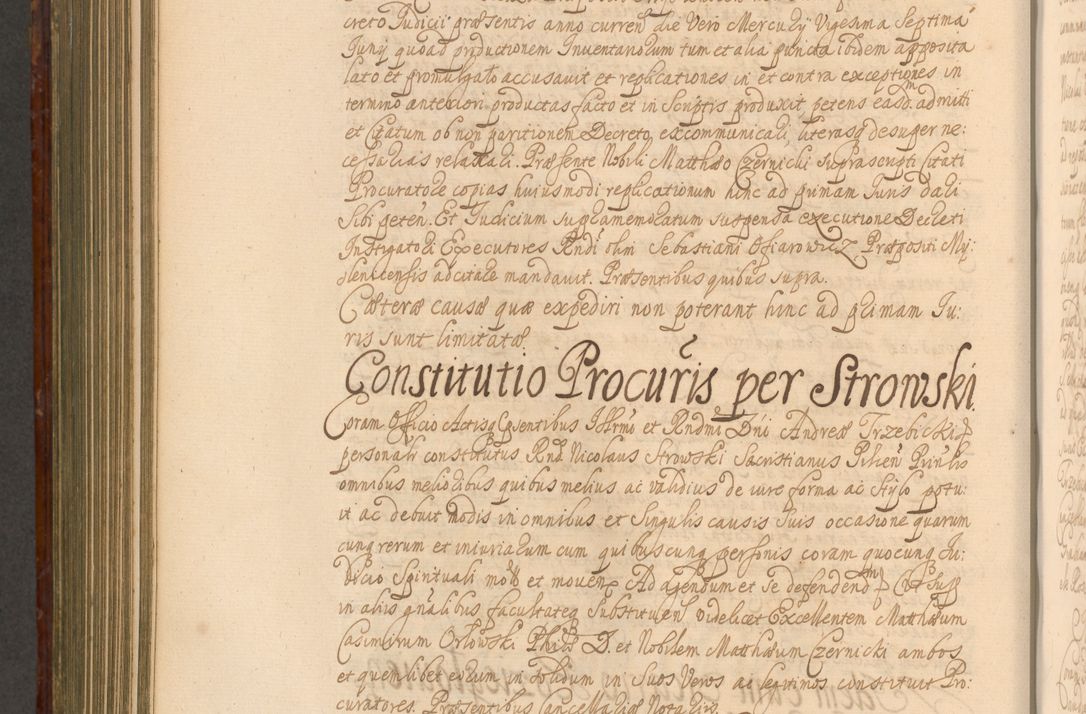 creto Judicii præsentis anno curren die Vero Mercurij Vigesima Septima
Junij quoad productionem Inventariorum tum et alia puncta ibidem apposita
lato et promulgato accusavit et replicationes in et contra exceptiones in
termino anteriori productas facto et in Scriptis produxit petens easd. admitti
et Citatum ob non paritionem Decreto, excommunicari, literasq desuper ne:
cessarias relaxari. Præsente Nobili Matthæo Czernicki suprascripti Citati
Procuratore copias huiusmodi replicationum hinc ad primam Juris dari
Sibi peten. Et Judicium supramemoratum suspensa executione Decreti
Instigatori Executores Rndi olim Sebastiani Ofiarowicz Præpositi My:
slenicensis adcitare mandavit. Præsentibus quibus supra.
Cæteræ causæ quæ expediri non poterant hinc ad primam Ju:
ris sunt limitatæ.
Constitutio Procuris per Strowski.
Coram Officio Actisq Psentibus Illrmi et Rndmi Dni Andreæ Trzebicki
personalr constitutus Rnd. Nicolaus Strowski Sacristianus Pilcen Prinlis
omnibus melioribus quibus melius ac validius de iure forma ac stylo potu:
it ac debuit modis in omnibus et Singulis causis suis occasione quarum
cunq rerum et iniuriarum cum quibuscunq personis coram quocunq Ju:
dicio Spirituali mot et moven Ad agendum et se defendend
in aliis gnalibus facultateq Substituen videlicet Excellentem Matthæum
Casimirum Orłowski Phiæ D. et Nobilem Matthæum Czernicki ambos
et quemlibet eorum in solidum in Suos Veros ac legitimos constituit Pro:
curatores. Præsentibus Cancellariæ Notariis.